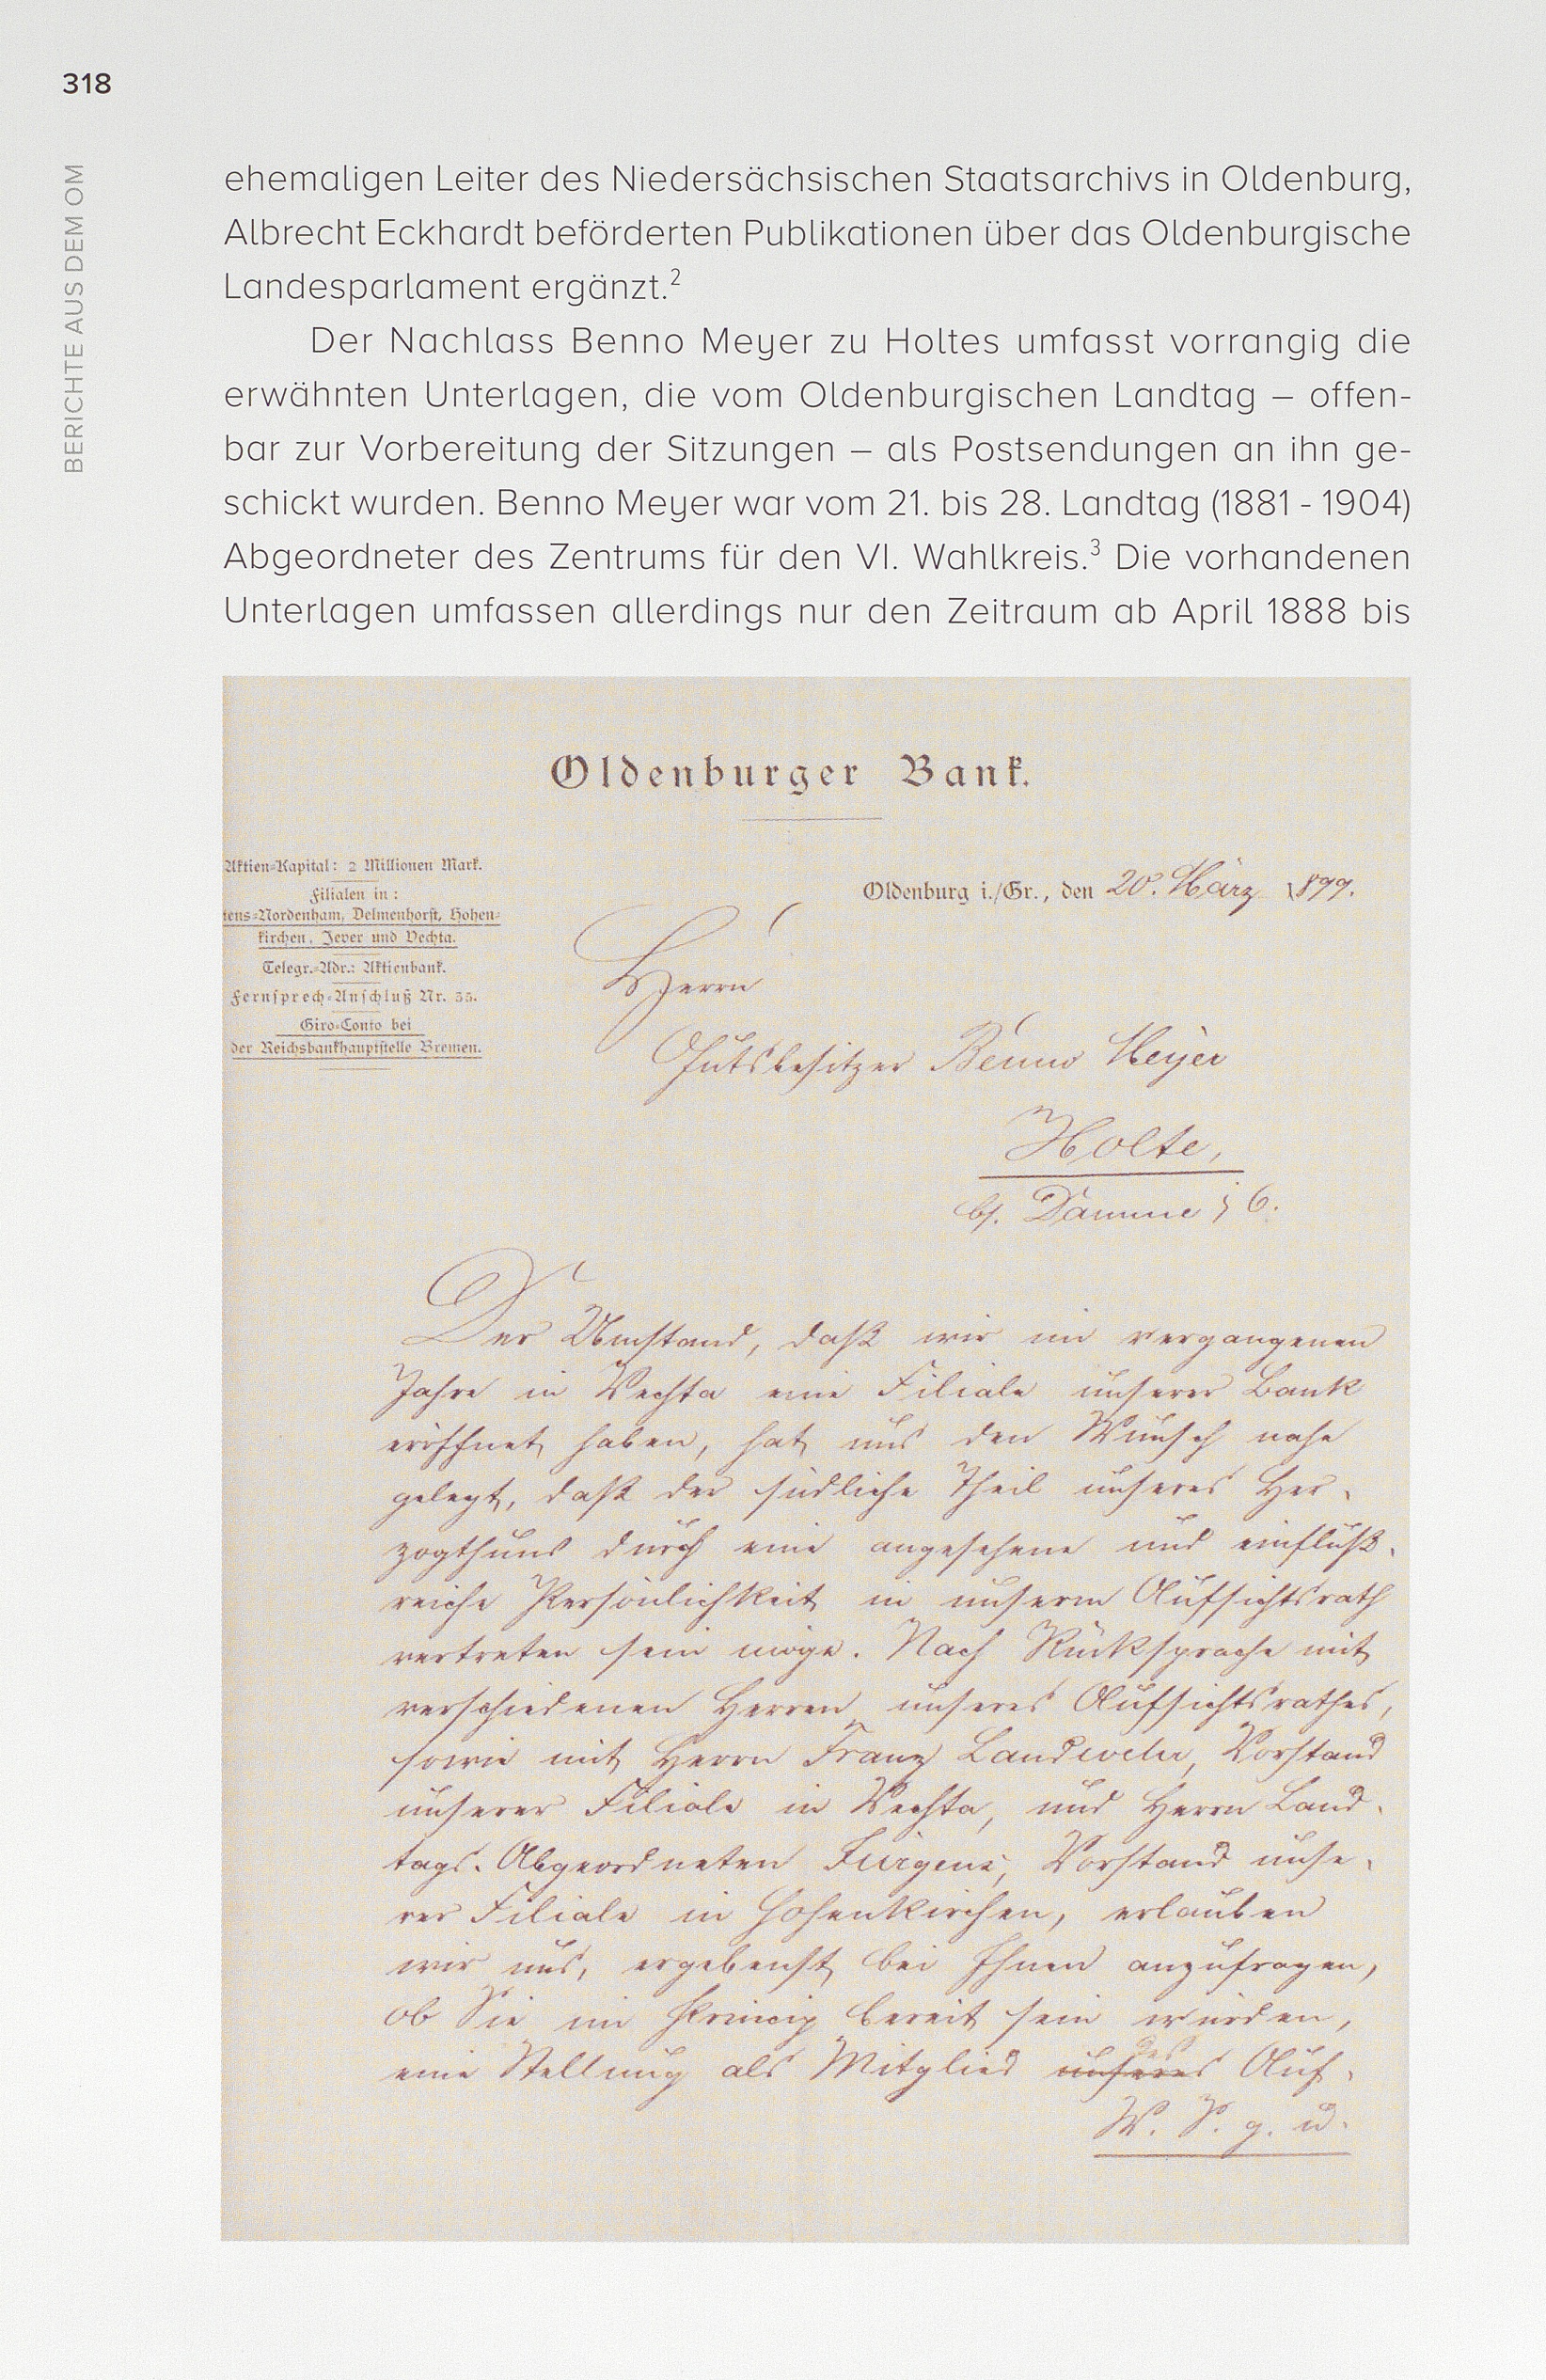 318
BERICHTE AUS DEM OM
ehemaligen Leiter des Niedersächsischen Staatsarchivs in Oldenburg,
Albrecht Eckhardt beförderten Publikationen über das Oldenburgische
Landesparlament ergänzt.2
Der Nachlass Benno Meyer zu Holtes umfasst vorrangig die
erwähnten Unterlagen, die vom Oldenburgischen Landtag – offen-
bar zur Vorbereitung der Sitzungen – als Postsendungen an ihn ge-
schickt wurden. Benno Meyer war vom 21. bis 28. Landtag (1881 - 1904)
Abgeordneter des Zentrums für den VI. Wahlkreis.3 Die vorhandenen
Unterlagen umfassen allerdings nur den Zeitraum ab April 1888 bis
Oldenburger Bank.
Aktien-Kapital: 2 Millionen Mark.
Filialen in:
iens-Nordenham, Delmenhorst, Hohen-
kirchen, Jever und Vechta.
Telegr.-Adr.: Aktienbank.
Fernsprech-Anschluß Nr. 35.
Giro-Conto bei
der Reichsbankhauptstelle Bremen.
Oldenburg i./Gr., den 20. März 1899.
Herrn
Gutsbesitzer Benno Meyer
Holte,
b/. Damme
Der Umstand, daß wir im vergangenen
Jahre in Vechta eine Filiale unserer Bank
eröffnet haben, hat uns den Wunsch nahe
gelegt, daß der südliche Theil unseres Her-
zogthums durch eine angesehene und einfluß-
reiche Persönlichkeit in unserm Aufsichtsrath
vertreten sein möge. Nach Rücksprache mit
verschiedenen Herren unseres Aufsichtsrathes,
sowie mit Herrn Franz Landwehr, Vorstand
unserer Filiale in Vechta, und Herrn Land-
tags-Abgeordneten Jürgens, Vorstand unse-
rer Filiale in Hohenkirchen, erlauben
wir uns, ergebenst bei Ihnen anzufragen,
ob Sie im Princip bereit sein würden,
eine Stellung als Mitglied unseres des Auf-
W. S. g. u.